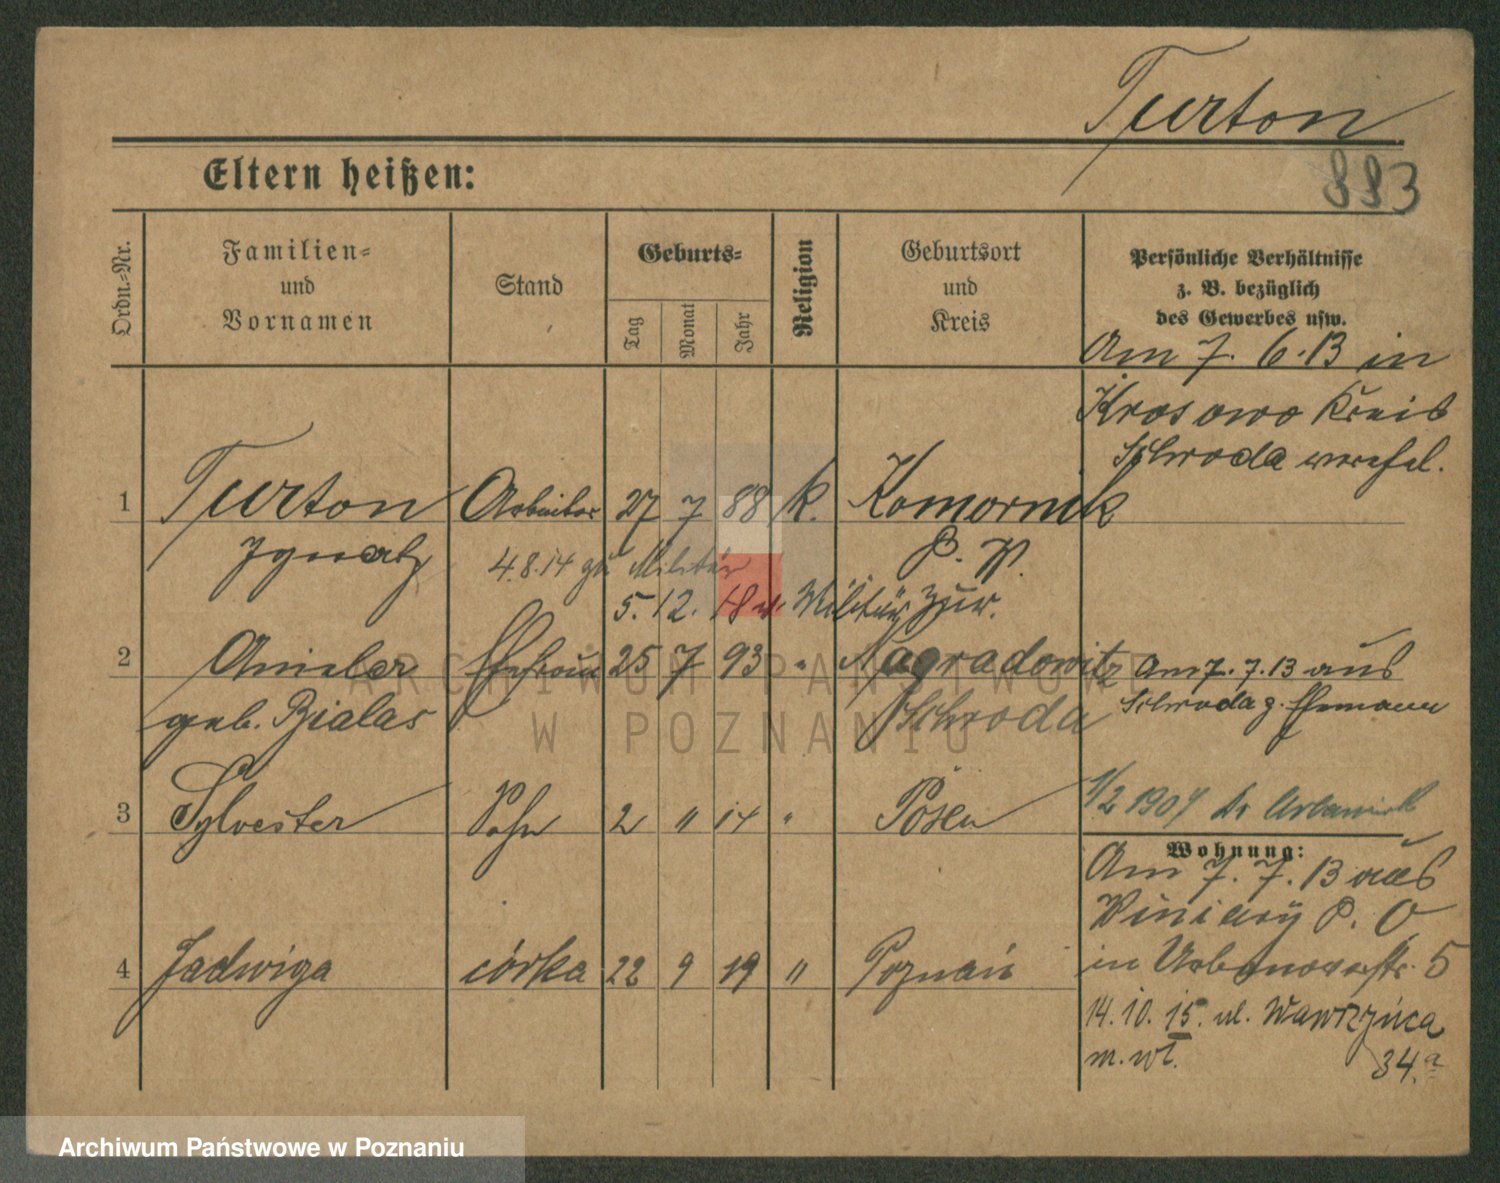 Turton
883
Eltern heißen:
Ordn.-Nr.
Familien-
und
Vornamen
Stand
Geburts-
Tag
Monat
Jahr
Religion
Geburtsort
und
Kreis
Persönliche Verhältnisse
z. B. bezüglich
des Gewerbes usw.
Am 7. 6. 13 in
Krosowo Kreis
Schroda verehel.
1 Turton Arbeiter 27 7 88 k. Komornik
Ignatz P. W.
4.8.14 zu Militär
5. 12. 18 v. Militär zur.
2 Aniela Ehefrau 25 7 93 " Nagradowitz
geb. Bialas Schroda
Am 7. 7. 13 aus
Schroda z. Ehemann
3 Sylvester Sohn 2 " 14 " Posen
1/2 1907 Dr
Wohnung:
Am 7. 7. 13 aus
Winiary P. O
in Urbanowostr. 5
4 Jadwiga córka 22 9 19 " Poznań
14. 10. 15. ul. Wawrzyńca
m. wł. 34.a
ARCHIWUM PAŃSTWOWE
W POZNANIU
Archiwum Państwowe w Poznaniu